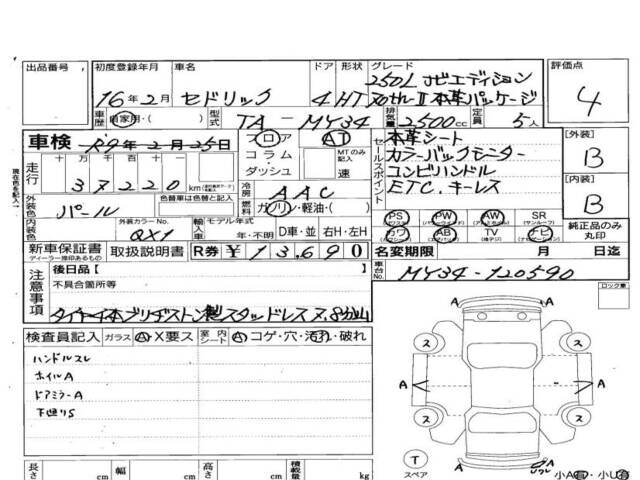 出品番号
初度登録年月 車名 ドア 形状 グレード 評価点
16年2月 セドリック 4 HT 250L Jビエディション
70th-II 本革パッケージ
4
車歴 自家用・( ) 型式 TA-MY34 排気量 2500cc 定員 5人
車検 年2月25日 フロア AT
コラム・ MTのみ記入
ダッシュ 速
走行 十万千百十
37220km
冷房 AAC
燃料 ガソリン・軽油・( )
セールスポイント
本革シート
カラーバックモニター
コンビハンドル
ETC.キーレス
【外装】 B
【内装】 B
外装色 パール 色替車は色替と記入
内装色 外装カラーNo. QX1
輸入車 モデル年式 年・不明 D車・並 右H・左H
PS PW AW SR
カワ AB TV ナビ
純正品のみ丸印
新車保証書 取扱説明書 R券 ¥13,690
ディーラー捺印あるもの
名変期限 月 日迄
車台No. MY34-120590
注意事項
後日品〔 〕
不具合箇所等
タイヤ4本ブリヂストン製スタッドレス 8分山
ロック車
検査員記入 ガラス A・X要ス 室内シート A・コゲ・穴・汚れ・破れ
ハンドルスレ
ホイルA
ドアミラーA
下廻りS
ス ス
A A A
ス ス
T
スペア
A
小A有・小U有
長さ cm 幅 cm 高さ cm 積載量 kg
現在色名記入→